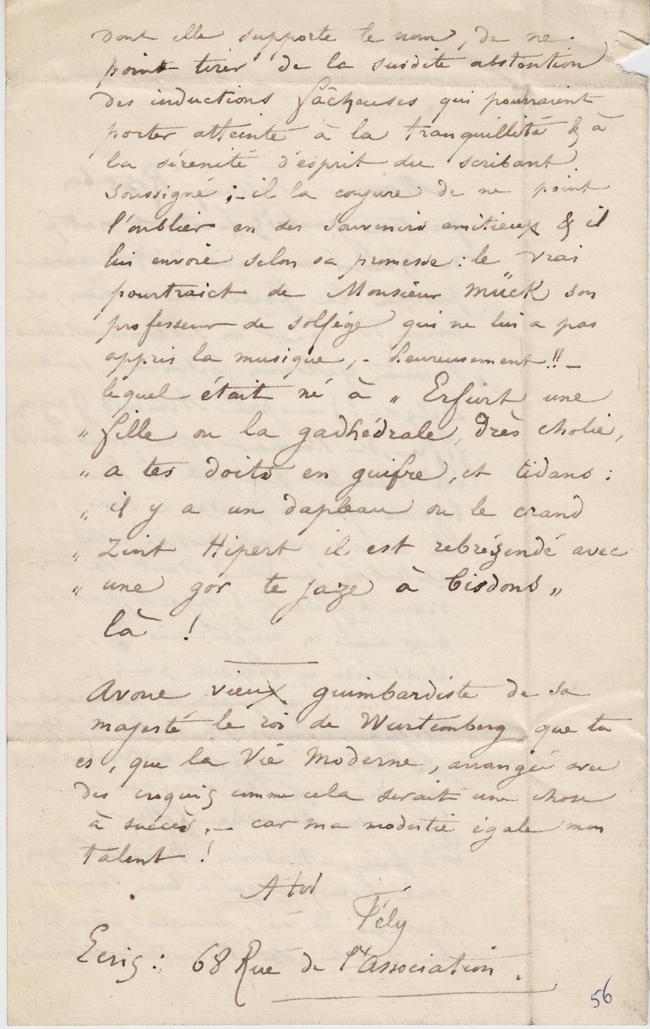 dont elle supporte le nom, de ne
point tirer de la susdite abstention
des inductions fâcheuses qui pourraient
porter atteinte à la tranquillité & à
la sérénité d'esprit du scribant
soussigné ; - il la conjure de ne point
l'oublier en ses souvenirs amitieux & il
lui envoie selon sa promesse : le vrai
pourtraict de Monsieur Mück son
professeur de solfége qui ne lui a pas
appris la musique, - heureusement !! -
lequel était né à „ Erfurt une
„ fille ou la gadhédrale, drès cholie,
„ a tes doits en guifre, et tidans :
„ il y a un dapleau ou le crand
„ Zint Hipert il est rebrézendé avec
„ une gor te jaze à Cisdons „
là !
Avoue vieux guimbardiste de sa
majesté le roi de Wurtemberg que tu
es, que la Vie Moderne, arrangée avec
des croquis comme cela serait une chose
à succès, - car ma modestie égale mon
talent !
A toi
Fély
Ecris : 68 Rue de l'Association.
56